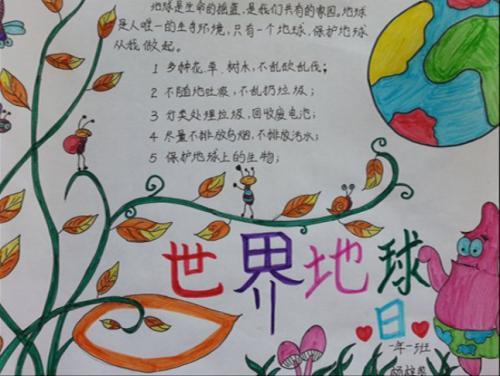 地球是生命的摇篮,是我们共有的家园。地球
是人唯一的生存环境,只有一个地球,保护地球
从我做起。
1 多种花、草、树木,不乱砍乱伐;
2 不随地吐痰,不乱扔垃圾;
3 分类处理垃圾,回收废电池;
4 尽量不排放乌烟,不排放污水;
5 保护地球上的生物;
世界地球
日
一年一班
杨